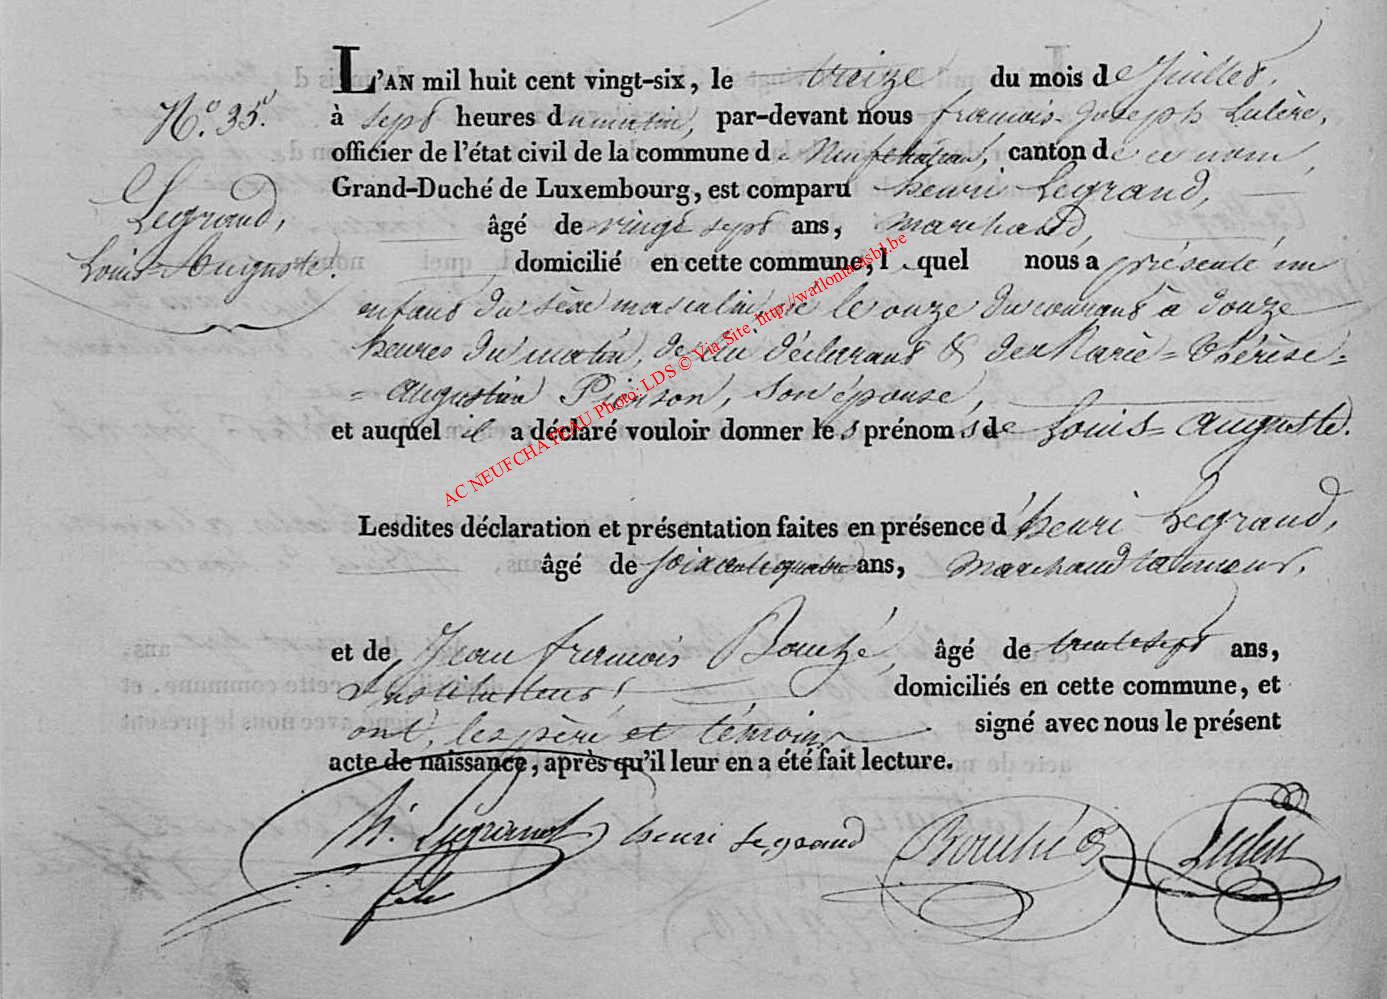 L'AN mil huit cent vingt-six, le treize du mois de Juillet,
N.° 35.
à sept heures du matin, par-devant nous françois-Joseph Lulère,
officier de l'état civil de la commune de Neufchateau, canton de ce nom,
Grand-Duché de Luxembourg, est comparu henri Legrand,
Legrand,
âgé de vingt sept ans, marchand,
Louis-Auguste.
domicilié en cette commune, lequel nous a présenté un
enfant du sexe masculin, né le onze du courant à douze
heures du matin, de lui déclarant & de Marie=Thérèse=
=Augustine Pierson, son épouse,
et auquel il a déclaré vouloir donner les prénoms de Louis=Auguste.
AC NEUFCHATEAU Photo: LDS © Via Site, http://walloniaasbl.be
Lesdites déclaration et présentation faites en présence d'henri Legrand,
âgé de soixante quatre ans, marchand tanneur,
et de Jean françois Bouché, âgé de trente sept ans,
Instituteur, domiciliés en cette commune, et
ont, les père et témoins signé avec nous le présent
acte de naissance, après qu'il leur en a été fait lecture.
h. Legrand henri Legrand Bouché
fils